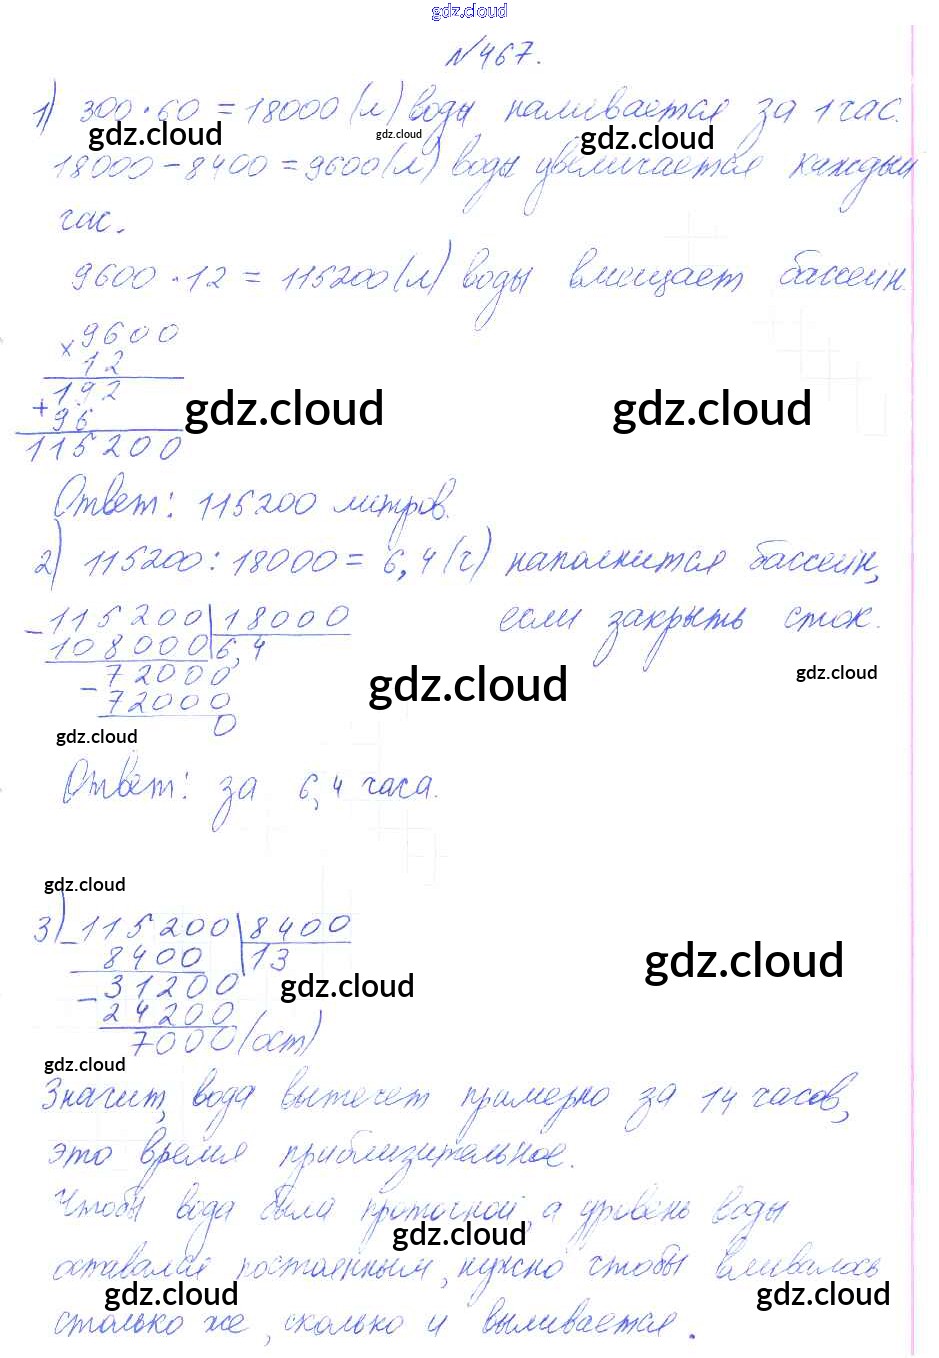 gdz.cloud
№467.
1) 300·60=18000(л) воды наливается за 1 час.
gdz.cloud gdz.cloud gdz.cloud
18000-8400=9600(л) воды увеличается каждый
час.
9600·12=115200(л) воды вмещает бассейн.
×9600
12
192
+96
gdz.cloud gdz.cloud
115200
Ответ: 115200 литров.
2) 115200:18000=6,4(ч) наполнится бассейн,
-115200|18000 если закрыть сток.
108000|6,4
-72000
gdz.cloud gdz.cloud
72000
0
gdz.cloud
Ответ: за 6,4 часа.
gdz.cloud
3) -115200|8400
8400|13
gdz.cloud
-31200
gdz.cloud
24200
7000(ост)
gdz.cloud
Значит, вода вытечет примерно за 14 часов,
это время приблизительное.
Чтобы вода была проточной, а уровень воды
gdz.cloud
оставался постоянным, нужно чтобы вливалось
gdz.cloud gdz.cloud
столько же, сколько и выливается.